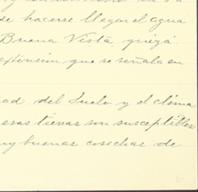 de hacerse llegar el agua
Buena Vista quizá
extensión que se señala en
del suelo y el clima
esas tierras son susceptibles
muy buenas cosechas de